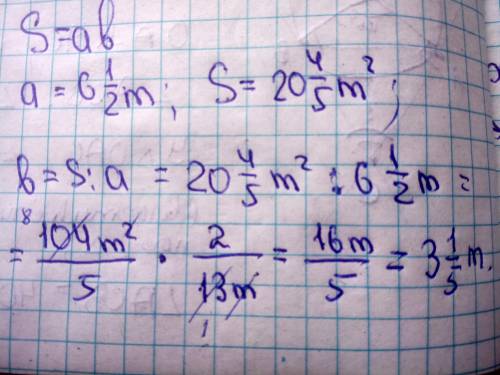 S=ab
a = 6 1/2 m; S = 20 4/5 m²;
b = S : a = 20 4/5 m² : 6 1/2 m =
= 8 104 m²/5 · 2/13 m 1 = 16 m/5 = 3 1/5 m.